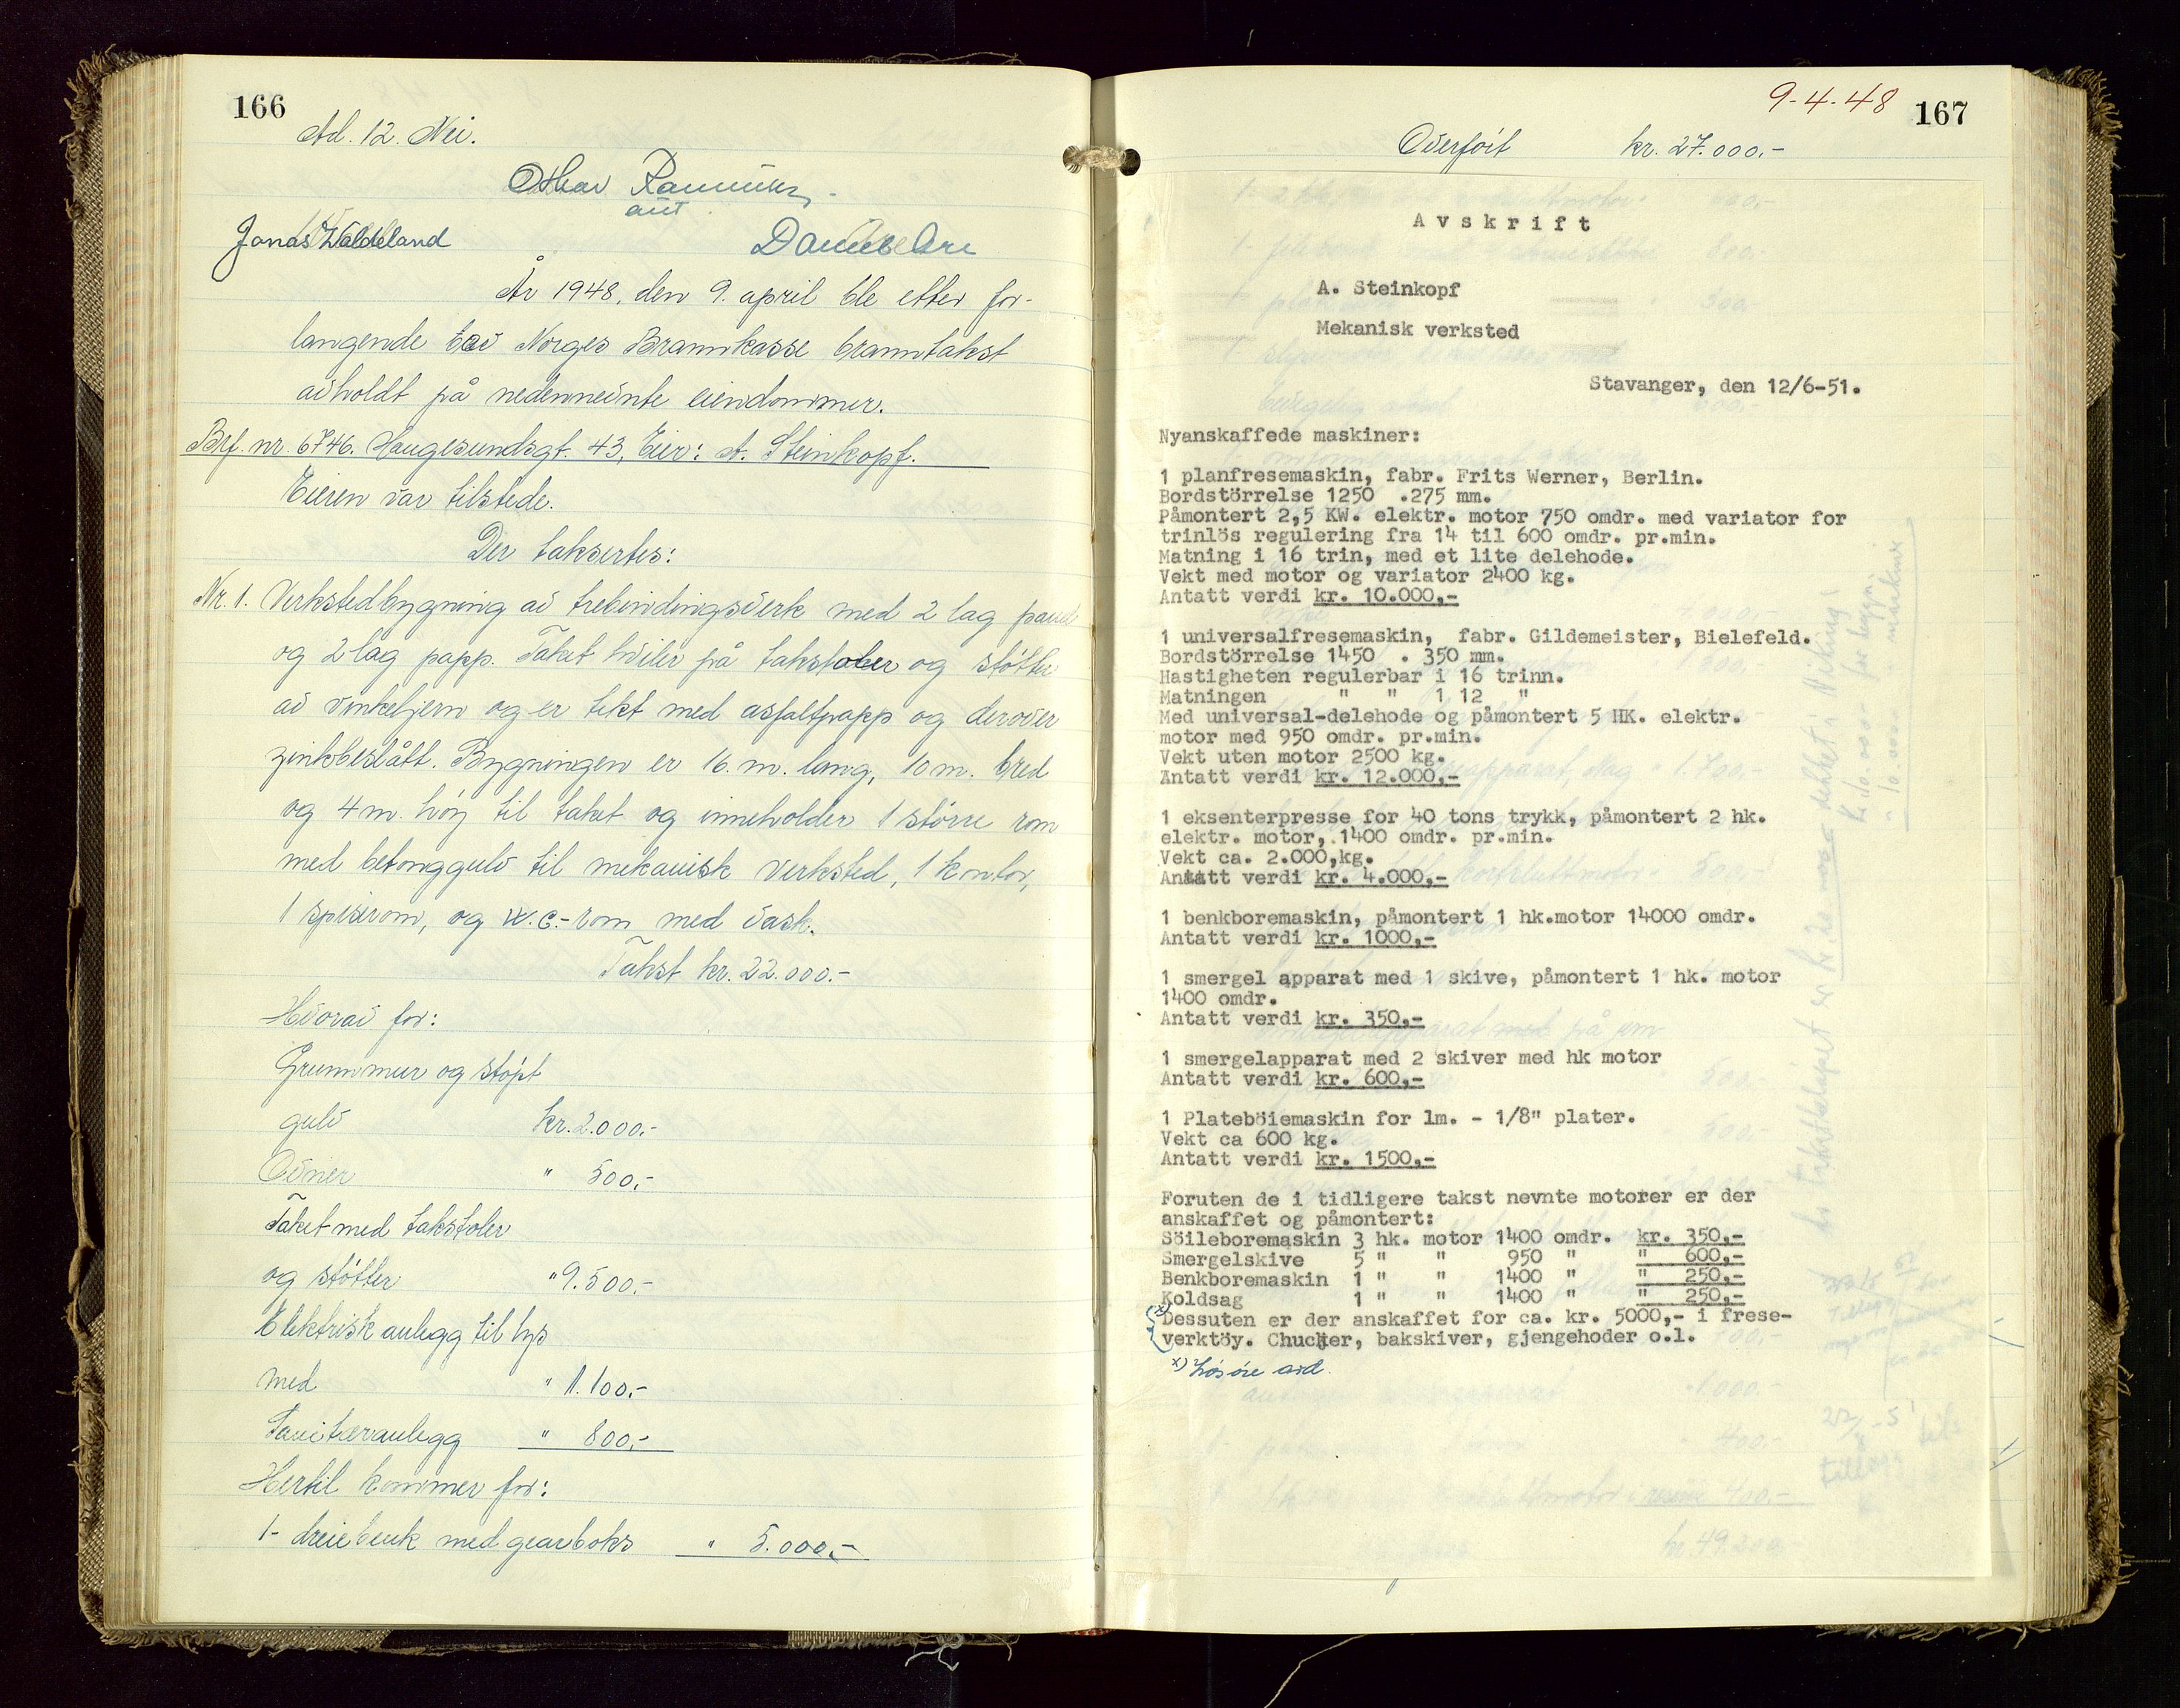 166
Ad. 12. Nei.
Othar
aut
Jonas Waldeland
År 1948, den 9. april ble etter for-
langende av Norges Brannkasse branntakst
avholdt på nedennevnte eiendommer.
Brf. nr. 6746. Haugesundsgt. 43, Eier: A. Steinkopf.
Eieren var tilstede.
Der taksertes:
Nr. 1. Verkstedbygning av trebindingsverk med 2 lag panel
og 2 lag papp. Taket hviler på takstoler og støtter
av vinkeljern og er tekt med asfaltpapp og derover
zinkbeslått. Bygningen er 16. m. lang, 10 m. bred
og 4 m. høy til taket og inneholder 1 større rom
med betonggulv til mekanisk verksted, 1 kontor,
1 spiserom, og w.c.-rom med vask.
Takst kr. 22.000.-
Hvorav for:
Grunnmur og støpt
gulv kr. 2.000.-
Ovner " 500.-
Taket med takstoler
og støtter " 9.500.-
Elektrisk anlegg til lys
med " 1.100.-
Sanitæranlegg " 800.-
Hertil kommer for:
1- dreiebenk med gearboks " 5.000.-
9-4-48 167
Overført kr. 27.000.-
Avskrift
A. Steinkopf
Mekanisk verksted
Stavanger, den 12/6-51.
Nyanskaffede maskiner:
1 planfresemaskin, fabr. Frits Werner, Berlin.
Bordstörrelse 1250 .275 mm.
Påmontert 2,5 KW. elektr. motor 750 omdr. med variator for
trinlös regulering fra 14 til 600 omdr. pr.min.
Matning i 16 trin, med et lite delehode.
Vekt med motor og variator 2400 kg.
Antatt verdi kr. 10.000,-
1 universalfresemaskin, fabr. Gildemeister, Bielefeld.
Bordstörrelse 1450 . 350 mm.
Hastigheten regulerbar i 16 trinn.
Matningen " " 1 12 "
Med universal-delehode og påmontert 5 HK. elektr.
motor med 950 omdr. pr.min.
Vekt uten motor 2500 kg.
Antatt verdi kr. 12.000,-
1 eksenterpresse for 40 tons trykk, påmontert 2 hk.
elektr. motor, 1400 omdr. pr.min.
Vekt ca. 2.000,kg.
Antatt verdi kr. 4.000,-
1 benkboremaskin, påmontert 1 hk.motor 14000 omdr.
Antatt verdi kr. 1000,-
1 smergel apparat med 1 skive, påmontert 1 hk. motor
1400 omdr.
Antatt verdi kr. 350,-
1 smergelapparat med 2 skiver med hk motor
Antatt verdi kr. 600,-
1 Plateböiemaskin for 1m. - 1/8" plater.
Vekt ca 600 kg.
Antatt verdi kr. 1500,-
Foruten de i tidligere takst nevnte motorer er der
anskaffet og påmontert:
Söileboremaskin 3 hk. motor 1400 omdr. kr. 350,-
Smergelskive 5 " " 950 " " 600,-
Benkboremaskin 1 " " 1400 " " 250,-
Koldsag 1 " " 1400 " " 250,-
x) Dessuten er der anskaffet for ca. kr. 5000,- i frese-
verktöy. Chucker, bakskiver, gjengehoder o.l.
x) Løsøre